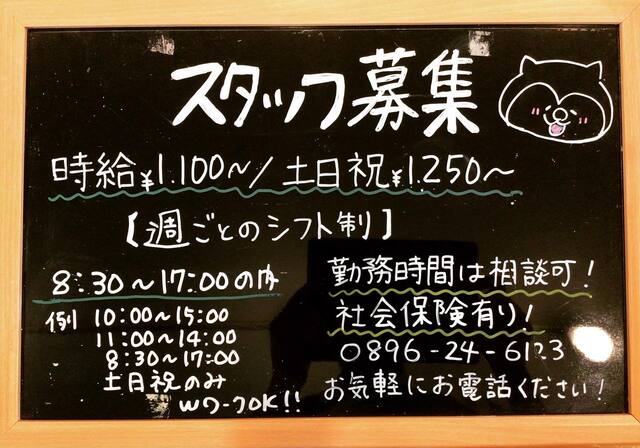 スタッフ募集
時給¥1.100〜/土日祝¥1.250〜
【週ごとのシフト制】
8:30〜17:00の内
例 10:00〜15:00
11:00〜14:00
8:30〜17:00
土日祝のみ
WワークOK!!
勤務時間は相談可!
社会保険有り!
0896-24-6123
お気軽にお電話ください!